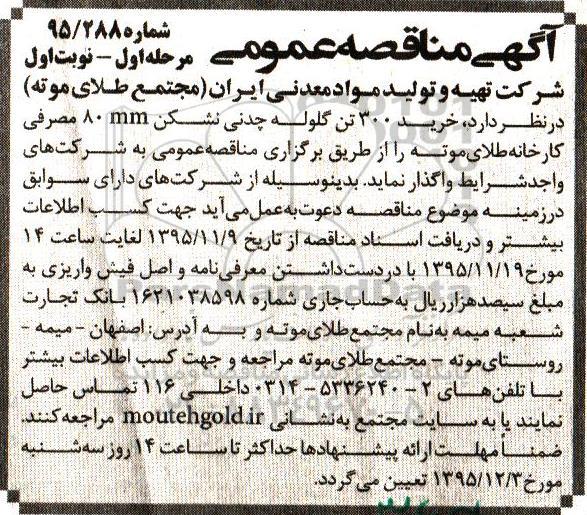 آگهی مناقصه عمومی
شماره ۹۵/۲۸۸
مرحله اول - نوبت اول
شرکت تهیه و تولید مواد معدنی ایران (مجتمع طلای موته)
در نظر دارد، خرید ۳۰۰ تن گلوله چدنی نشکن ۸۰ mm مصرفی
کارخانه طلای موته را از طریق برگزاری مناقصه عمومی به شرکت‌های
واجد شرایط واگذار نماید. بدینوسیله از شرکت‌های دارای سوابق
در زمینه موضوع مناقصه دعوت به عمل می آید جهت کسب اطلاعات
بیشتر و دریافت اسناد مناقصه از تاریخ ۱۳۹۵/۱۱/۹ لغایت ساعت ۱۴
مورخ ۱۳۹۵/۱۱/۱۹ با در دست داشتن معرفی‌نامه و اصل فیش واریزی به
مبلغ سیصد هزار ریال به حساب جاری شماره ۱۶۲۱۰۳۸۵۹۸ بانک تجارت
شعبه میمه به نام مجتمع طلای موته و به آدرس: اصفهان - میمه -
روستای موته - مجتمع طلای موته مراجعه و جهت کسب اطلاعات بیشتر
با تلفن‌های ۲ - ۵۳۳۶۲۴۰ - ۰۳۱۴ داخلی ۱۱۶ تماس حاصل
نمایند یا به سایت مجتمع به نشانی moutehgold.ir مراجعه کنند.
ضمناً مهلت ارائه پیشنهادها حداکثر تا ساعت ۱۴ روز سه شنبه
مورخ ۱۳۹۵/۱۲/۳ تعیین می گردد.